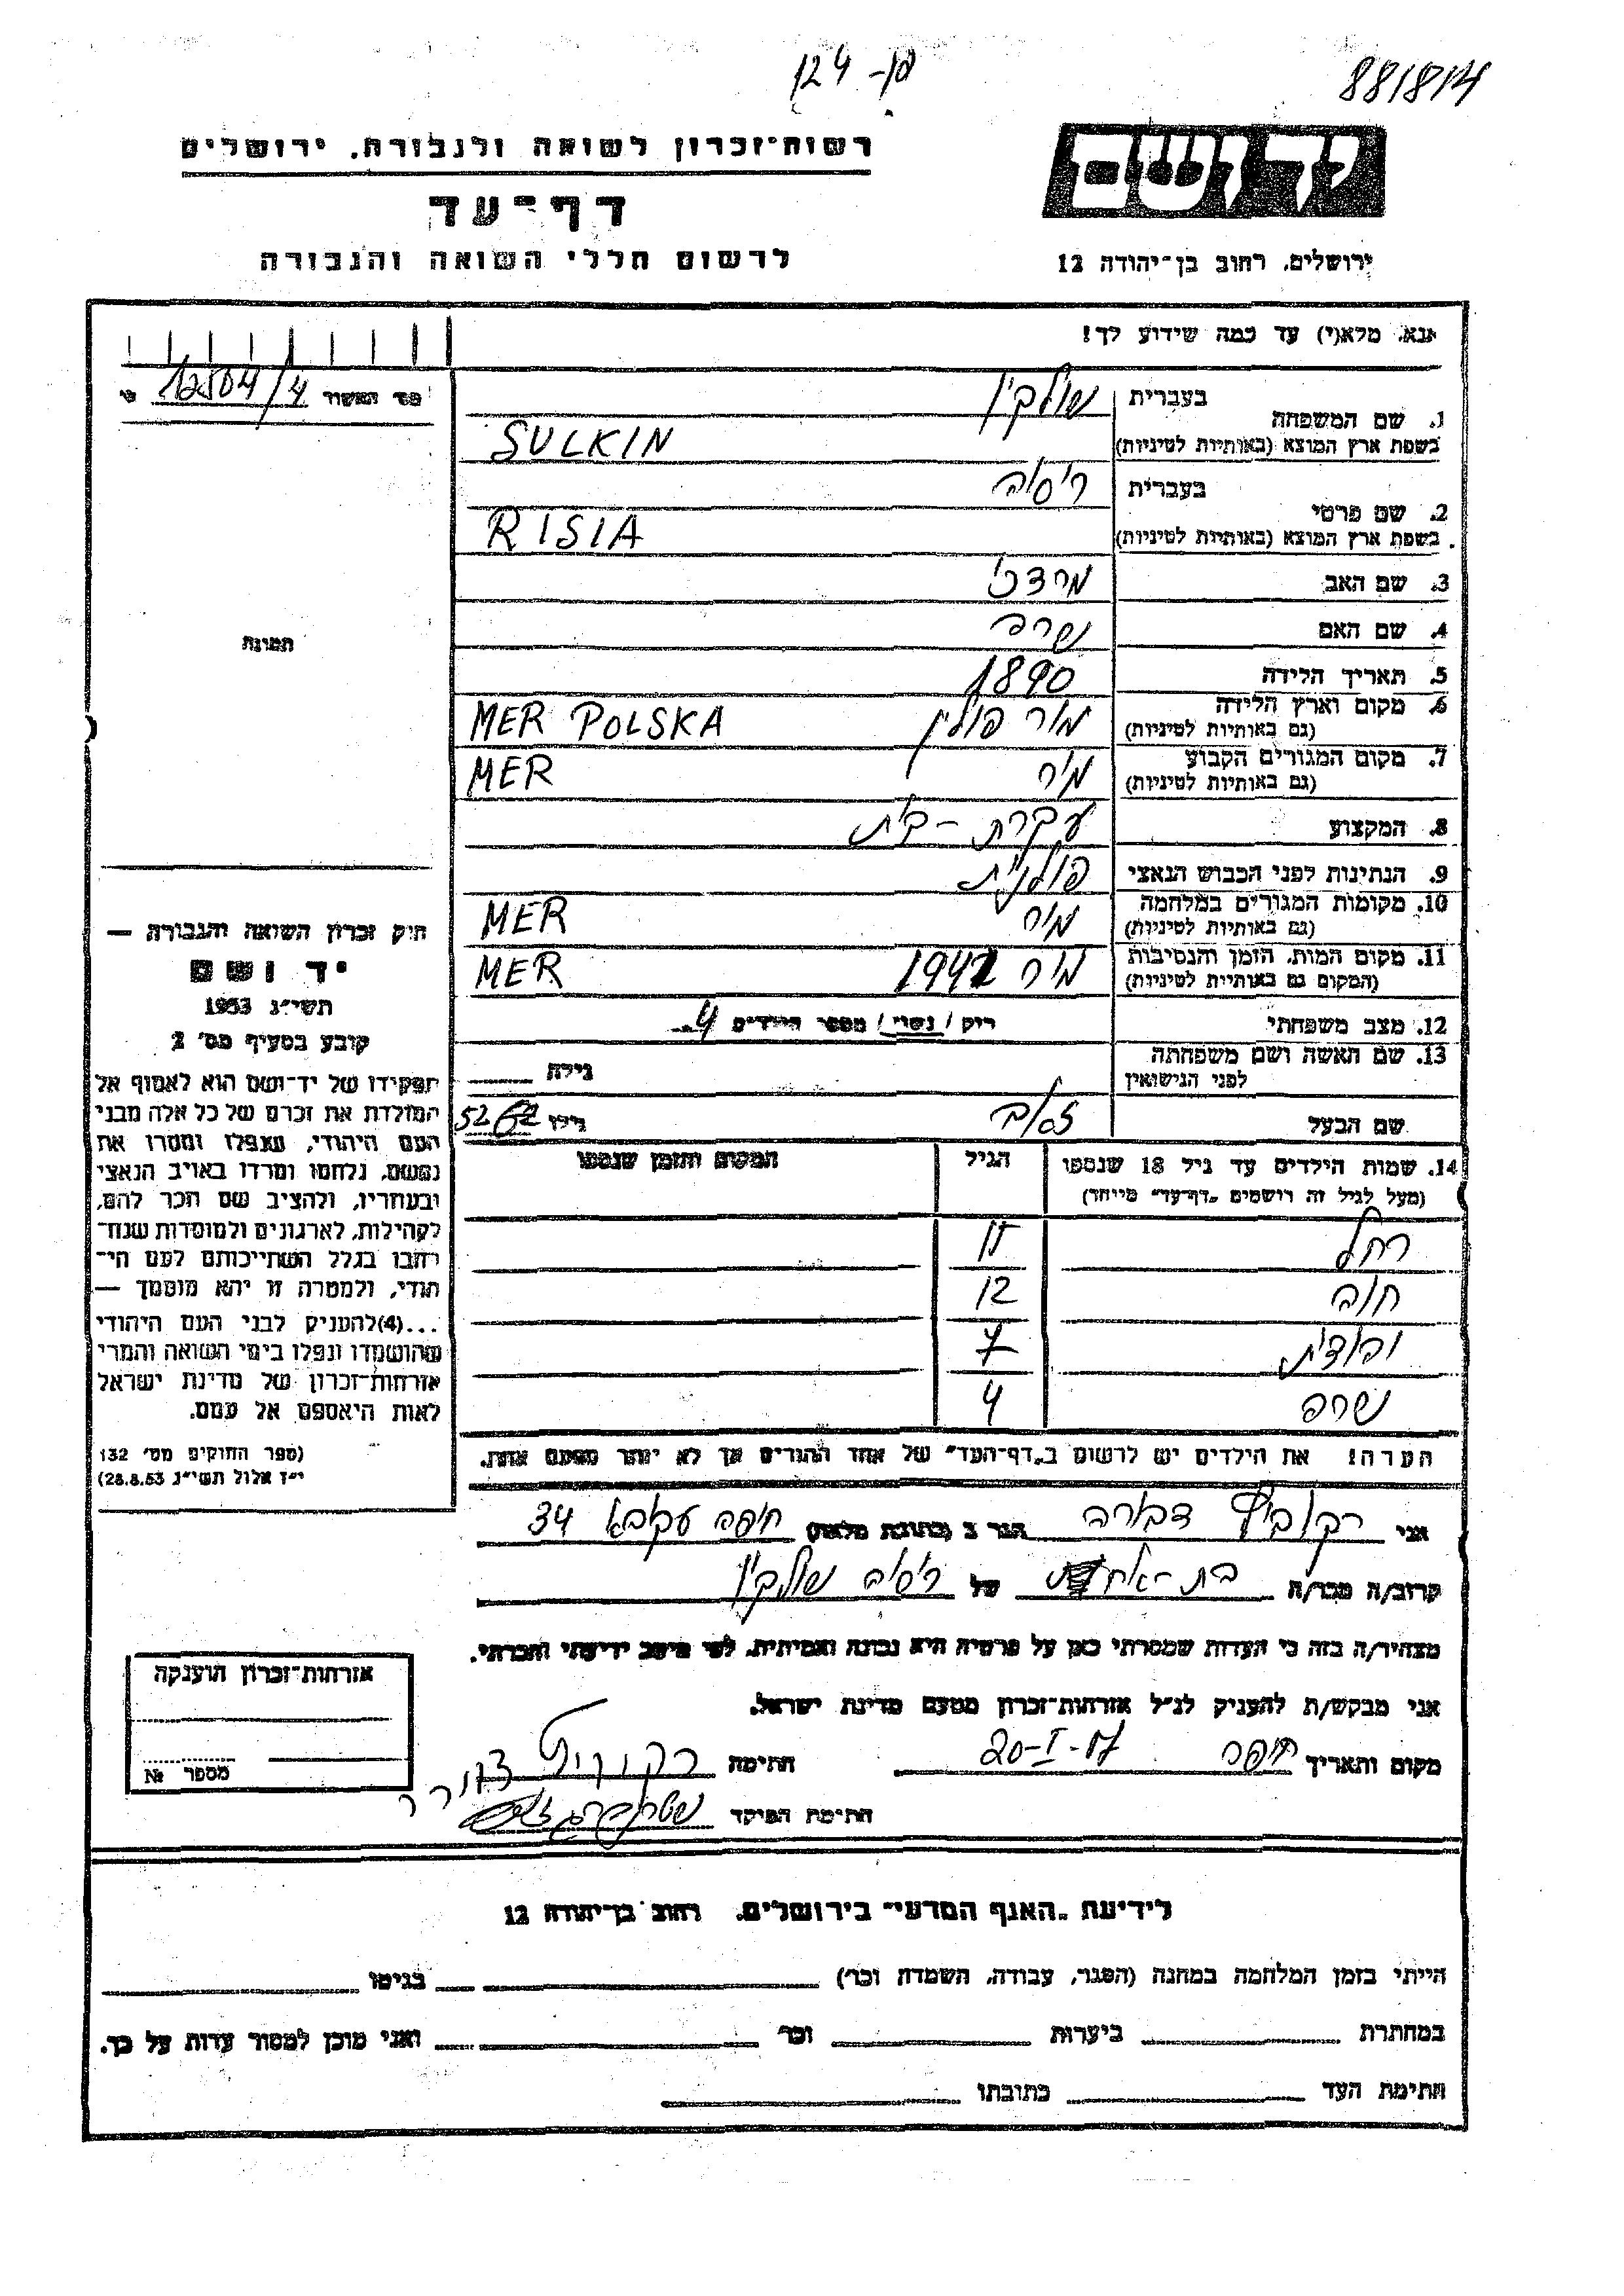 124 -פו
881814
רשות־זכרון לשואה ולגבורה, ירושלים
ידושם
דף־עד
לרשום חללי השואה והגבורה
ירושלים, רחוב בן־יהודה 12
אנא, מלא(י) עד כמה שידוע לך!
מס׳ האשור 12504/4
בעברית שולקין
1. שם המשפחה
בשפת ארץ המוצא (באותיות לטיניות) SULKIN
בעברית ריסיה
2. שם פרטי
בשפת ארץ המוצא (באותיות לטיניות) RISIA
3. שם האב מרדכי
4. שם האם שרה
תמונה
5. תאריך הלידה 1890
6. מקום וארץ הלידה מיר פולין MER POLSKA
(גם באותיות לטיניות)
7. מקום המגורים הקבוע מיר MER
(גם באותיות לטיניות)
8. המקצוע עקרת-בית
9. הנתינות לפני הכבוש הנאצי פולנית
10. מקומות המגורים במלחמה מיר MER
(גם באותיות לטיניות)
11. מקום המות, הזמן והנסיבות מיר MER
(המקום גם באותיות לטיניות)
12. מצב משפחתי רוק / נשוי / מספר הילדים 4
13. שם האשה ושם משפחתה גילה
לפני הנישואין
שם הבעל גילו 52
14. שמות הילדים עד גיל 18 שנספו הגיל המקום והזמן שנספו
(מעל לגיל זה רושמים "דף־עד" מיוחד)
רחל
חוה 12
יהודית 7
שרה 4
הערה! את הילדים יש לרשום ב"דף־העד" של אחד ההורים אך לא יותר מפעם אחת.
חוק זכרון השואה והגבורה —
יד ושם
תשי״ג 1953
קובע בסעיף מס׳ 2
תפקידו של יד־ושם הוא לאסוף אל
המולדת את זכרם של כל אלה מבני
העם היהודי, שנפלו ומסרו את
נפשם, נלחמו ומרדו באויב הנאצי
ובעוזריו, ולהציב שם וזכר להם,
לקהילות, לארגונים ולמוסדות שנח־
רבו בגלל השתייכותם לעם הי־
הודי, ולמטרה זו יהא מוסמך —
...(4) להעניק לבני העם היהודי
שהושמדו ונפלו בימי השואה והמרי
אזרחות־זכרון של מדינת ישראל
לאות היאספם אל עמם.
(ספר החוקים מס׳ 132
י״ז אלול תשי״ג 28.8.53)
אני רקוביץ דבורה הגר ב (כתובת מלאה) חיפה עקבא 34
קרוב/ה מכר/ה בת-אחות של ריסיה שולקין
מצהיר/ה בזה כי העדות שמסרתי כאן על פרטיה היא נכונה ואמיתית, לפי מיטב ידיעתי והכרתי.
אני מבקש/ת להעניק לנ״ל אזרחות־זכרון מטעם מדינת ישראל.
מקום ותאריך חיפה 20-I-57 חתימה רקוביץ דבורה
חתימת הפוקד
אזרחות־זכרון הוענקה
מספר №
לידיעת "האגף המדעי" בירושלים, רחוב בן־יהודה 12
הייתי בזמן המלחמה במחנה (הסגר, עבודה, השמדה וכו׳) בגיטו
במחתרת ביערות וכו׳ ואני מוכן למסור עדות על כך.
חתימת העד כתובתו